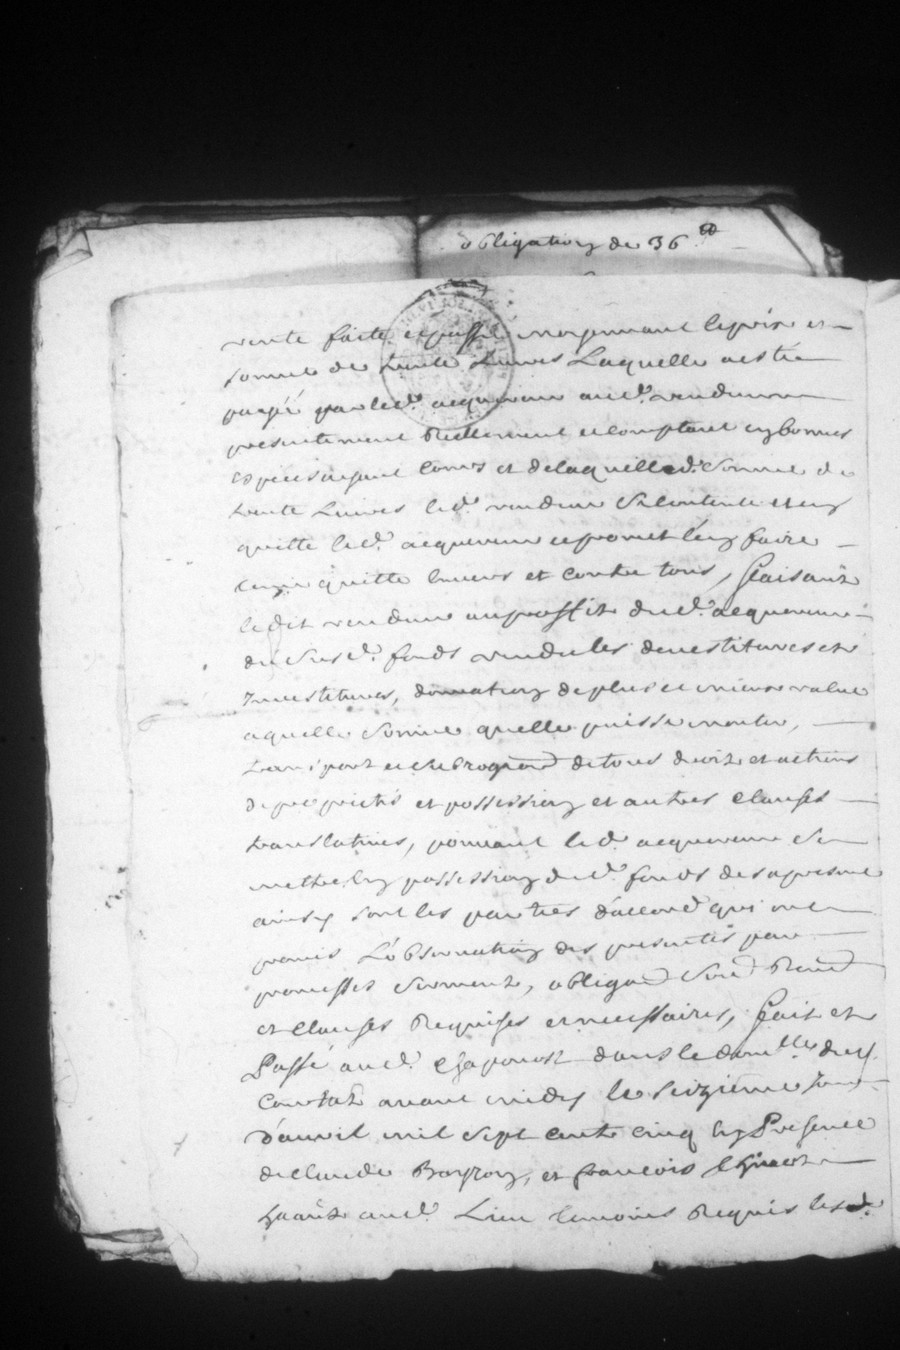 obligation de 36 ₶
vente faite et passé moyennant le prix et
somme de trente Livres Laquelle a esté
payéé par led. acquereur aud. vendeur
presentement Reellement et comptant en bonnes
especes ayant cours et de laquelle d. Somme de
trente Livres led. vendeur Se contente et en
quitte led. acquereur et promet l'en faire
tenir quitte envers et contre tous, faisant
ledit vendeur au proffit dud. acquereur
du Susd. fonds vendu les devestitures et
Investitures, donnation de plus et mieux value
a quelle Somme quelle puisse monter,
transport et Subrogaon de tous droits et actions
de proprieté et possession et autres clauses
translatives, pouvant led. acquereur Se
mettre en possession dud. fonds des a present
ainsy sont les parties d'accord qui ont
promis L'observation des presentes par
promesses Serment, obligaon
et clauses Requises et necessaires, fait et
Passé aud. Chaponost dans le domlle du
avant midy le Seizieme Jour
d'avril mil sept cents cinq En Presence
de Claude et françois
aud. Lieu temoins Requis les d.